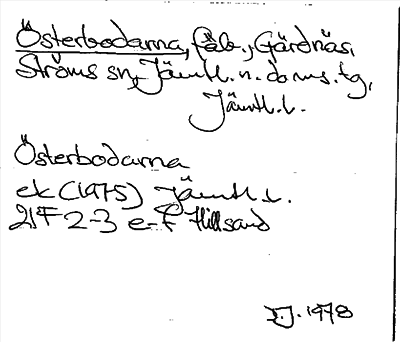 Österbodarna, fäb., Gärdnäs,
Ströms sn, Jämtl. n. doms. tg,
Jämtl. l.
Österbodarna
ek (1975) Jämtl. l.
21F 2-3 e-f Hillsand
1978